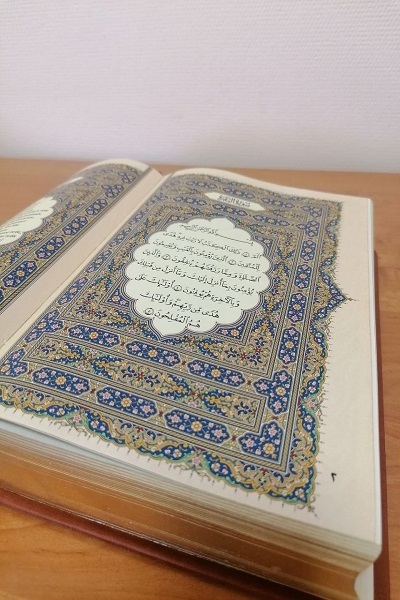 سُورَةُ البَقَرَةِ
بِسْمِ اللَّهِ الرَّحْمَٰنِ الرَّحِيمِ
الٓمٓ ۝١ ذَٰلِكَ الْكِتَٰبُ لَا رَيْبَ فِيهِ هُدًى
لِّلْمُتَّقِينَ ۝٢ الَّذِينَ يُؤْمِنُونَ بِالْغَيْبِ وَيُقِيمُونَ
الصَّلَوٰةَ وَمِمَّا رَزَقْنَٰهُمْ يُنفِقُونَ ۝٣ وَالَّذِينَ
يُؤْمِنُونَ بِمَا أُنزِلَ إِلَيْكَ وَمَا أُنزِلَ مِن قَبْلِكَ
وَبِالْءَاخِرَةِ هُمْ يُوقِنُونَ ۝٤ أُولَٰئِكَ عَلَىٰ
هُدًى مِّن رَّبِّهِمْ وَأُولَٰئِكَ
هُمُ الْمُفْلِحُونَ ۝٥
٢